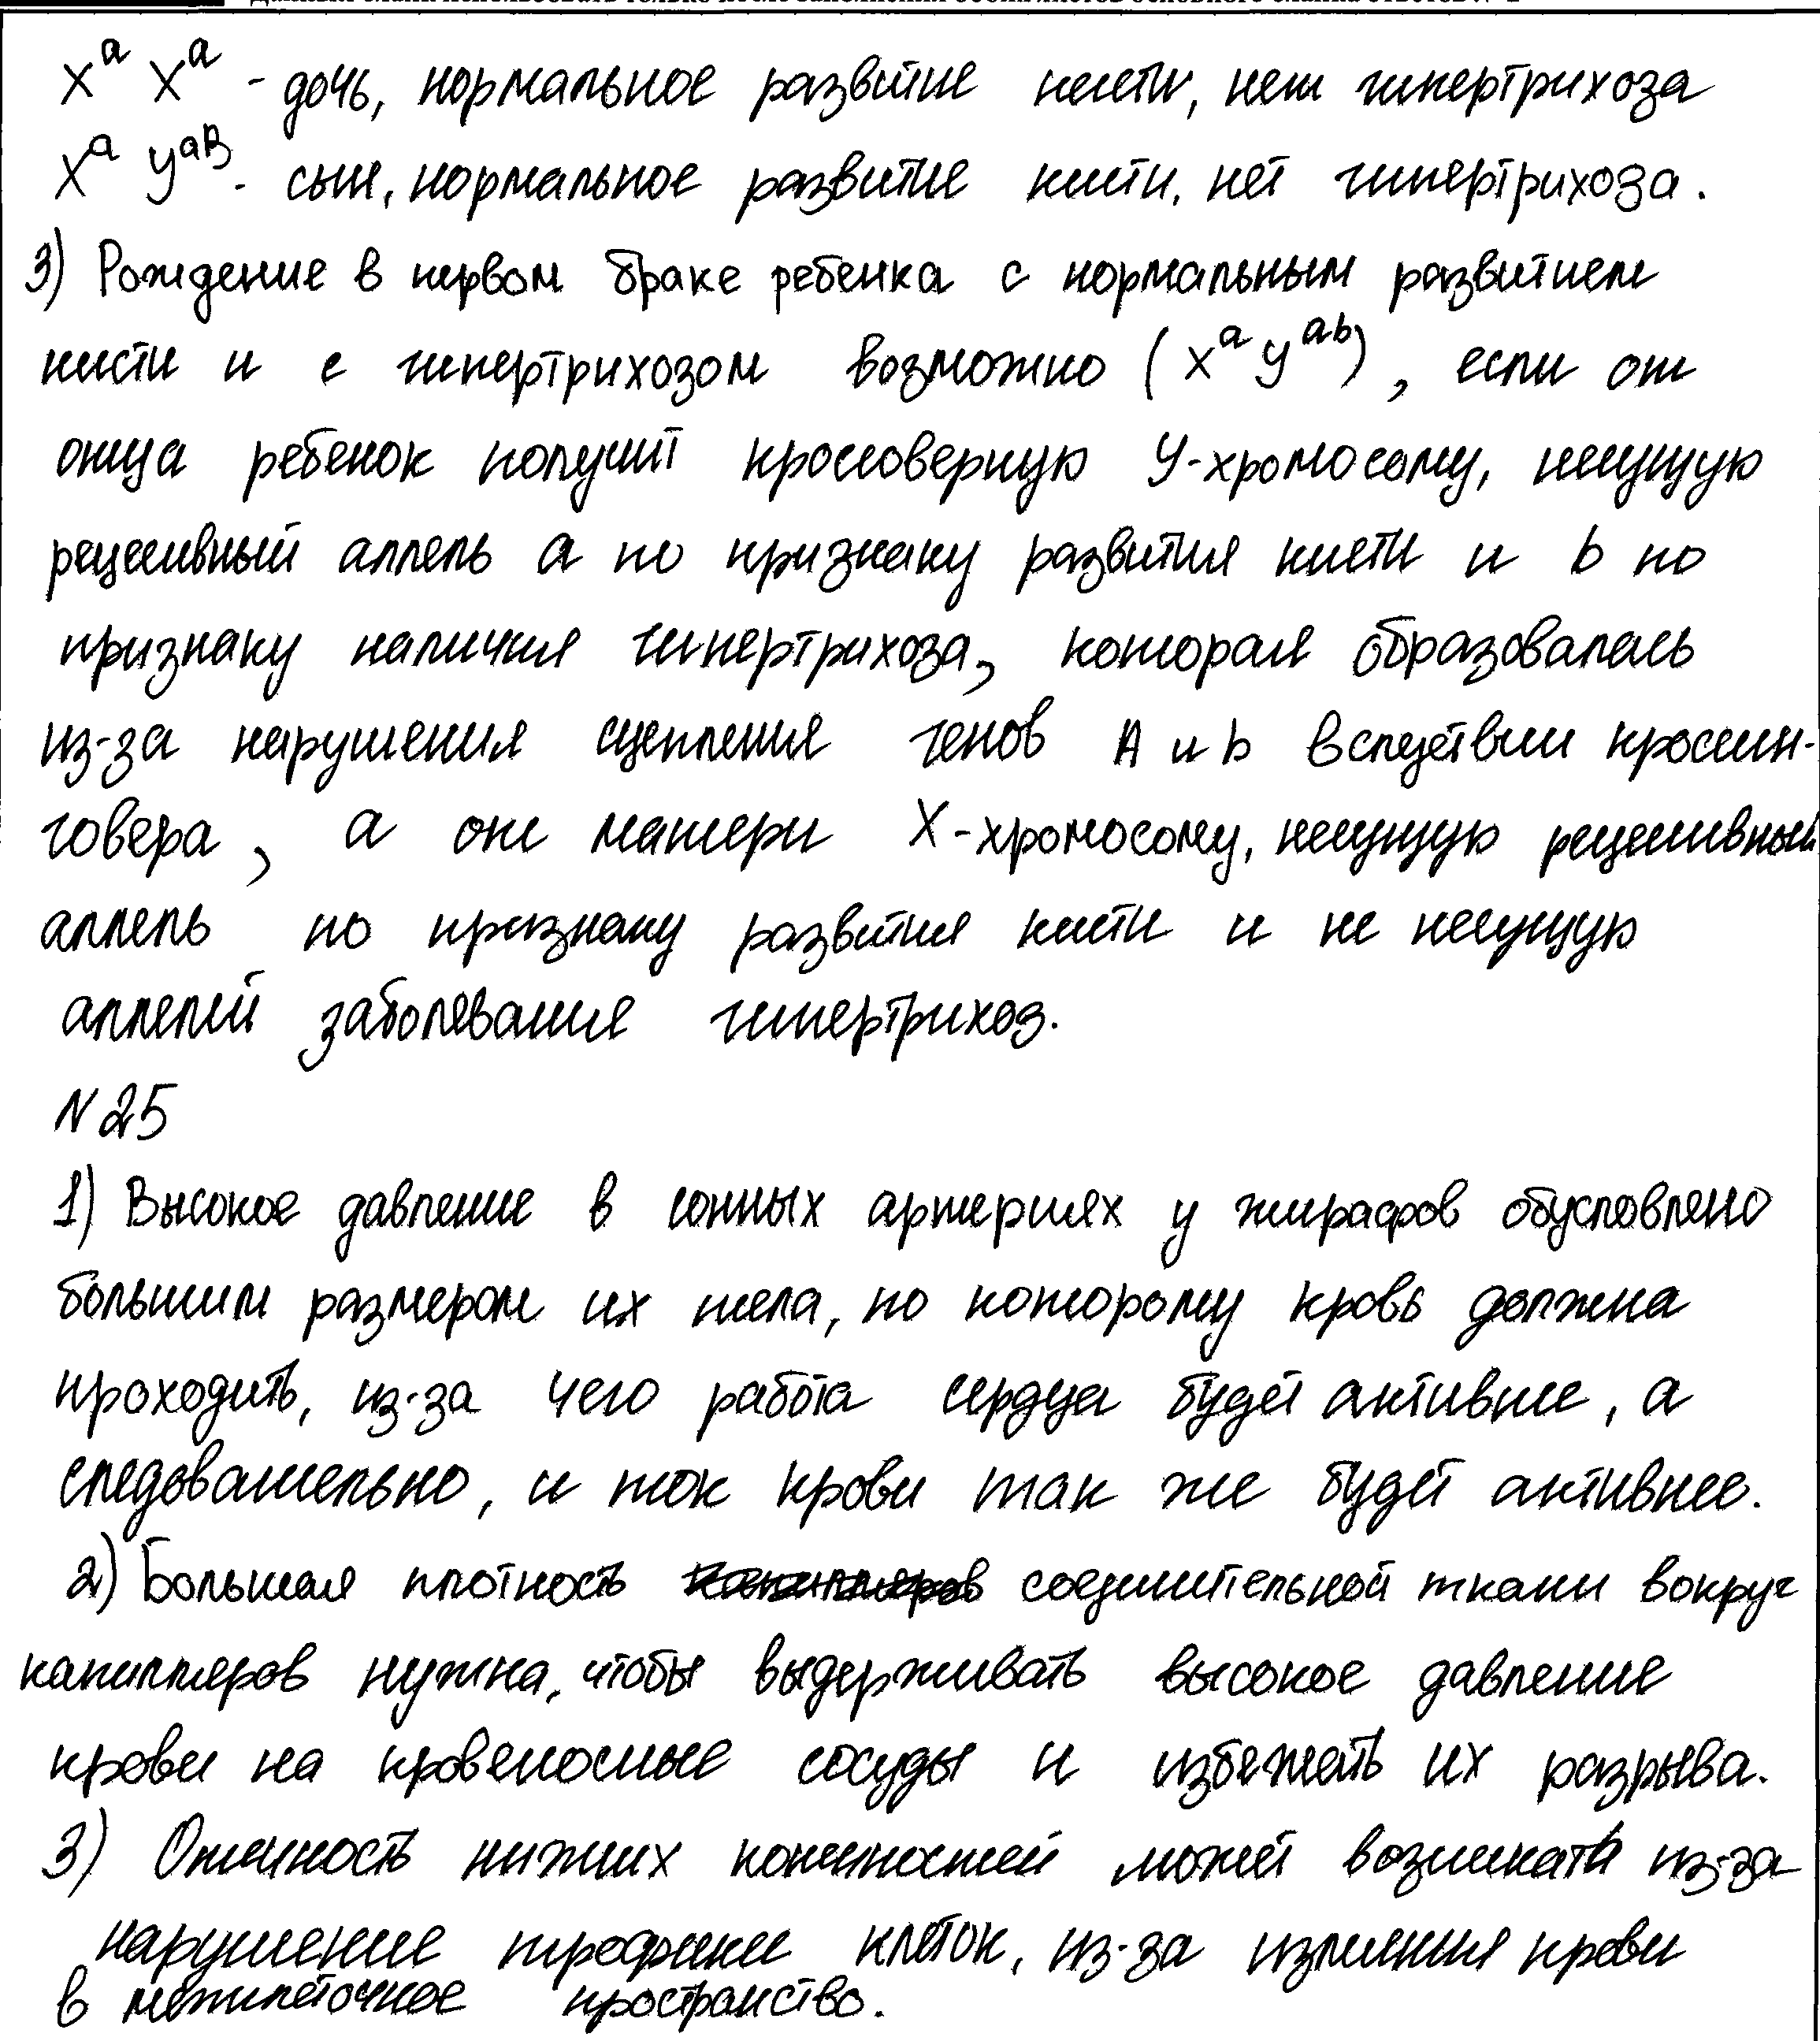 X^a X^a - дочь, нормальное развитие кисти, нет гипертрихоза
X^a Y^aB - сын, нормальное развитие кисти, нет гипертрихоза.
3) Рождение в первом браке ребенка с нормальным развитием
кисти и с гипертрихозом возможно (X^a Y^ab), если от
отца ребенок получит кроссоверную Y-хромосому, несущую
рецессивный аллель a по признаку развития кисти и b по
признаку наличия гипертрихоза, которая образовалась
из-за нарушения сцепления генов A и b вследствии кроссин-
говера, а от матери X-хромосому, несущую рецессивный
аллель по признаку развития кисти и не несущую
аллелей заболевания гипертрихоз.
N 25
1) Высокое давление в сонных артериях у жирафов обусловлено
большим размером их тела, по которому кровь должна
проходить, из-за чего работа сердца будет активнее, а
следовательно, и ток крови так же будет активнее.
2) Большая плотность соединительной ткани вокруг
капилляров нужна, чтобы выдерживать высокое давление
крови на кровеносные сосуды и избежать их разрыва.
3) Отечность нижних конечностей может возникать из-за
нарушение трофики клеток, из-за излияния крови
в межклеточное пространство.